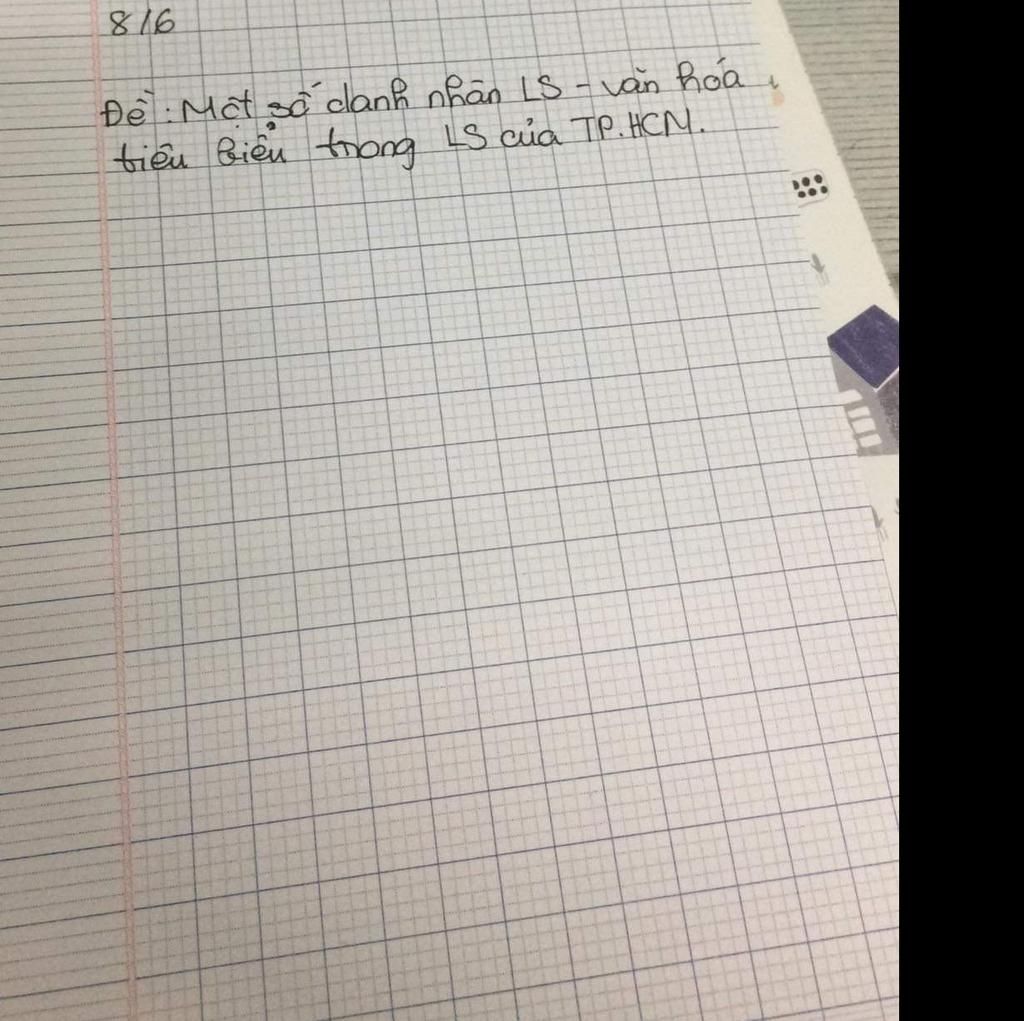 8/6
Đề: Một số danh nhân LS - văn hóa
tiêu biểu trong LS của TP.HCM.